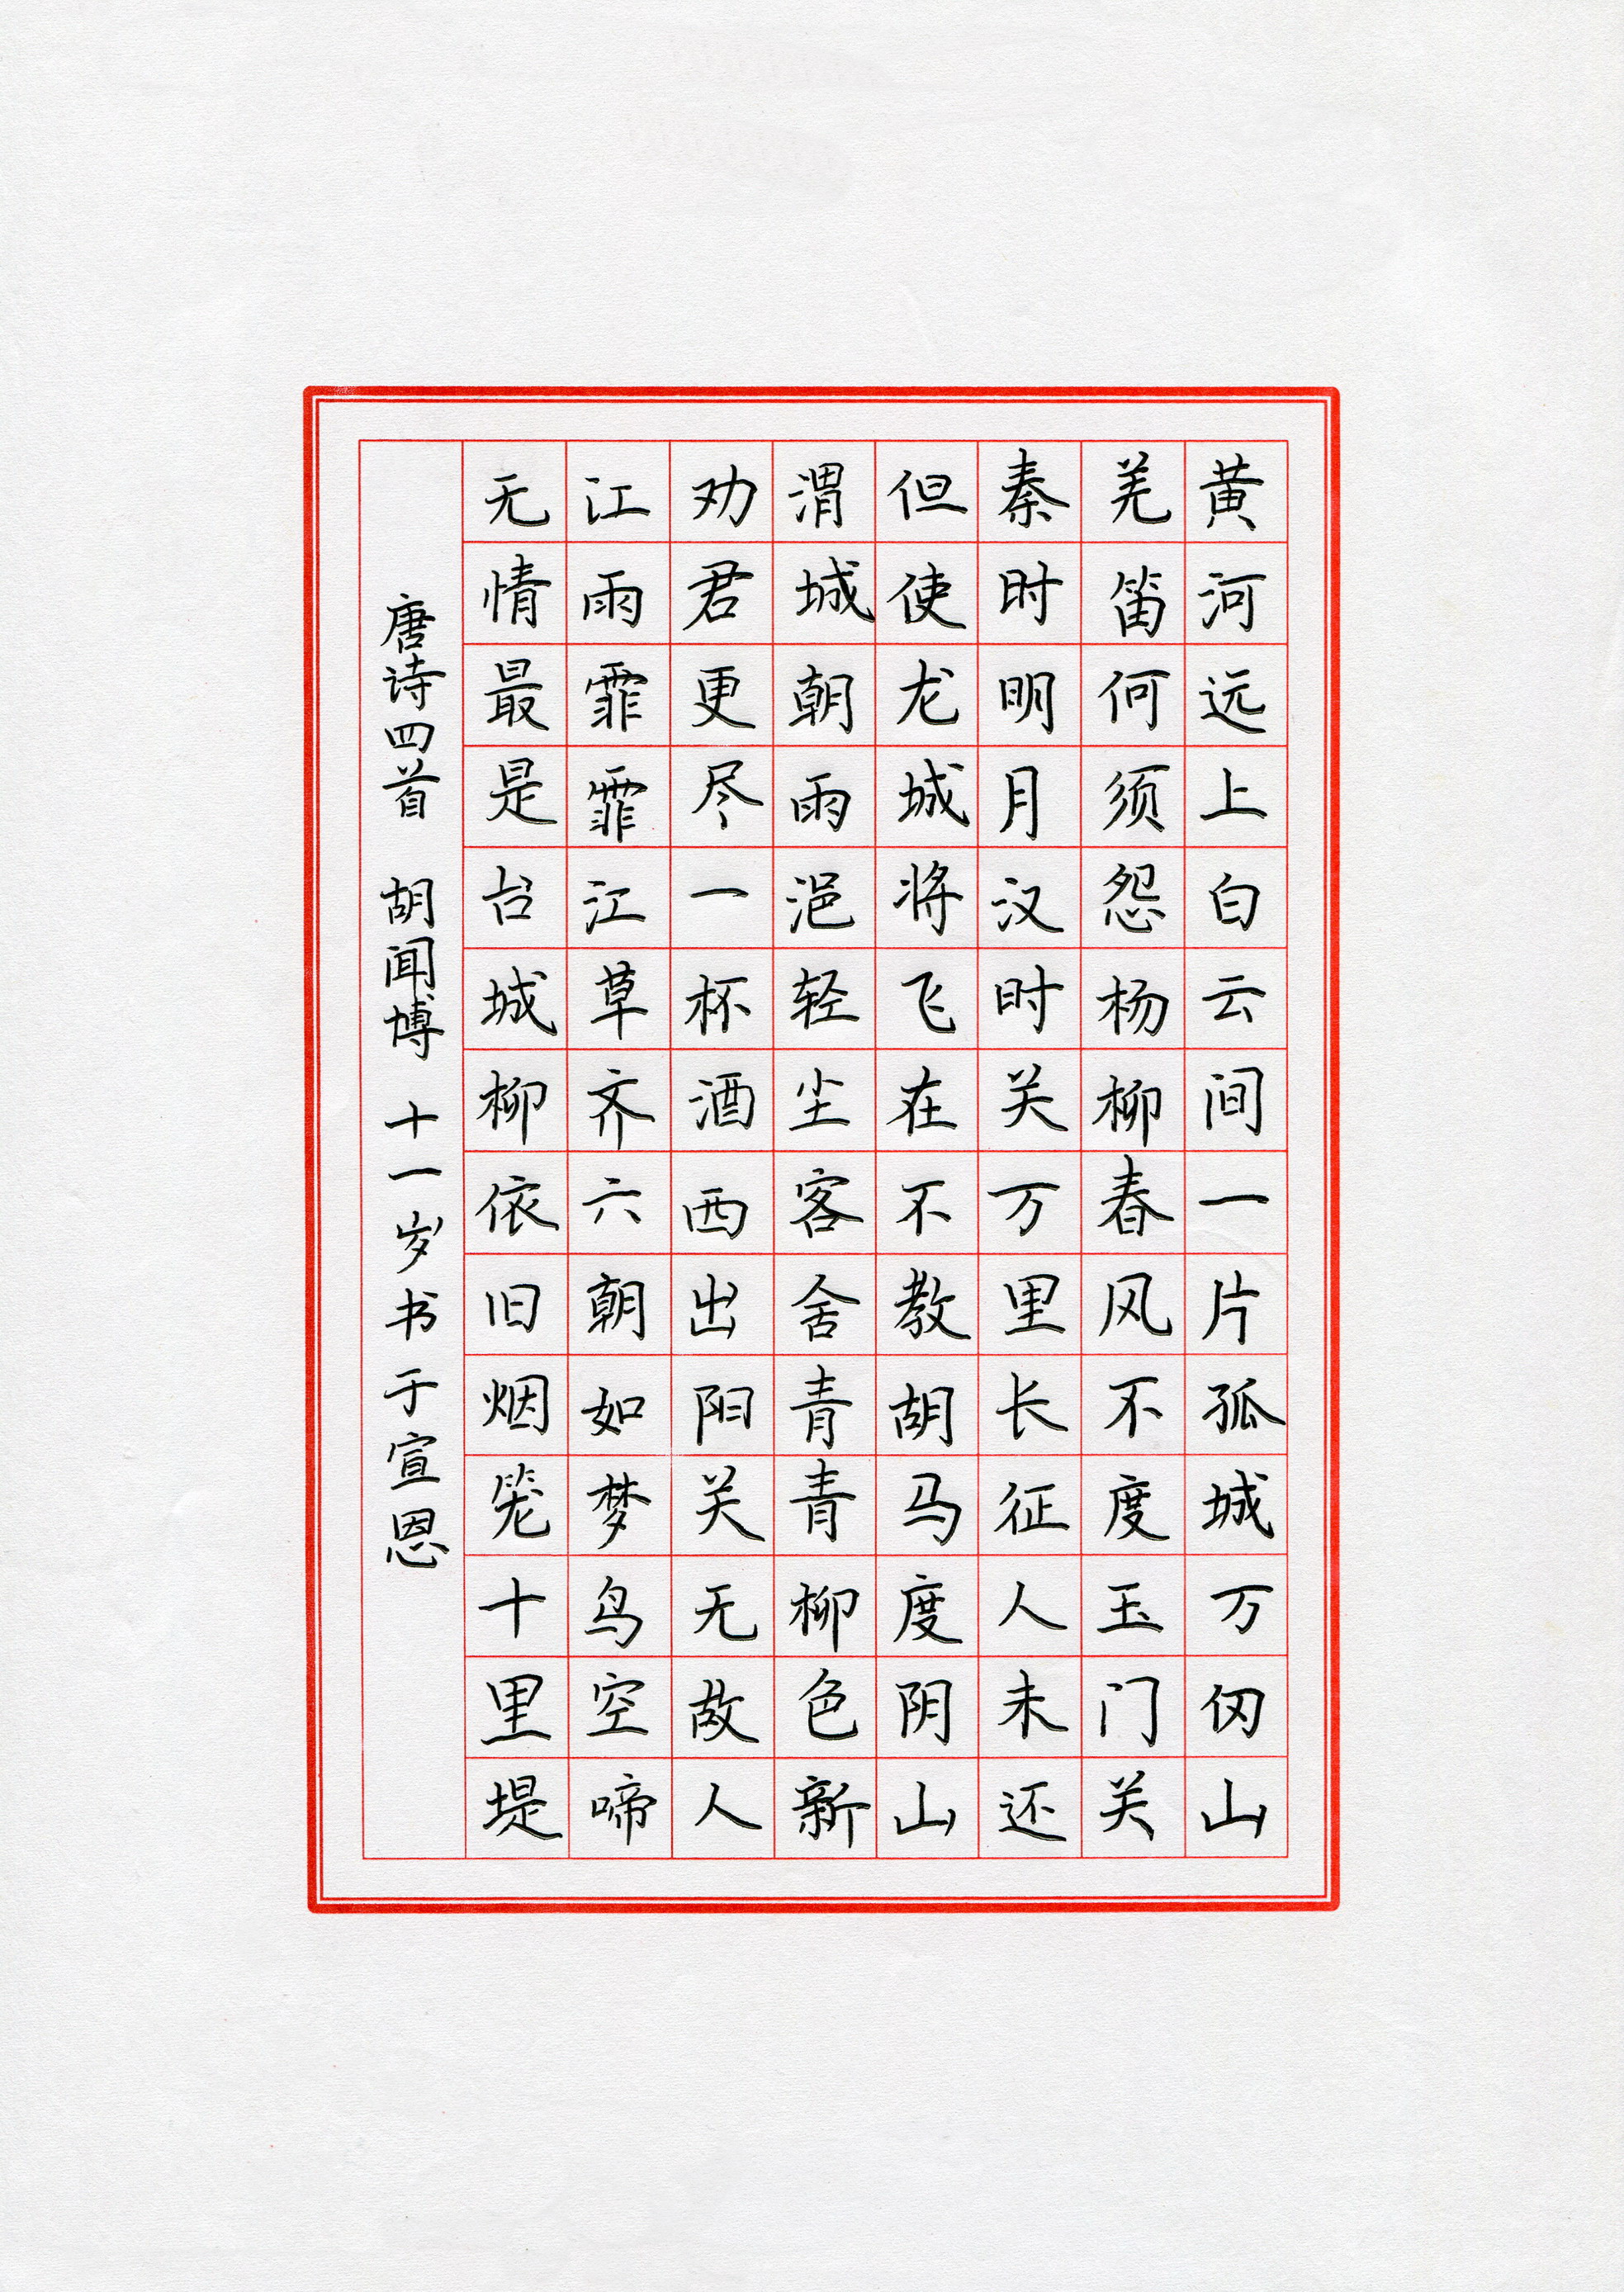 黄河远上白云间一片孤城万仞山
羌笛何须怨杨柳春风不度玉门关
秦时明月汉时关万里长征人未还
但使龙城将飞在不教胡马度阴山
渭城朝雨浥轻尘客舍青青柳色新
劝君更尽一杯酒西出阳关无故人
江雨霏霏江草齐六朝如梦鸟空啼
无情最是台城柳依旧烟笼十里堤
唐诗四首 胡闻博 十一岁书于宣恩